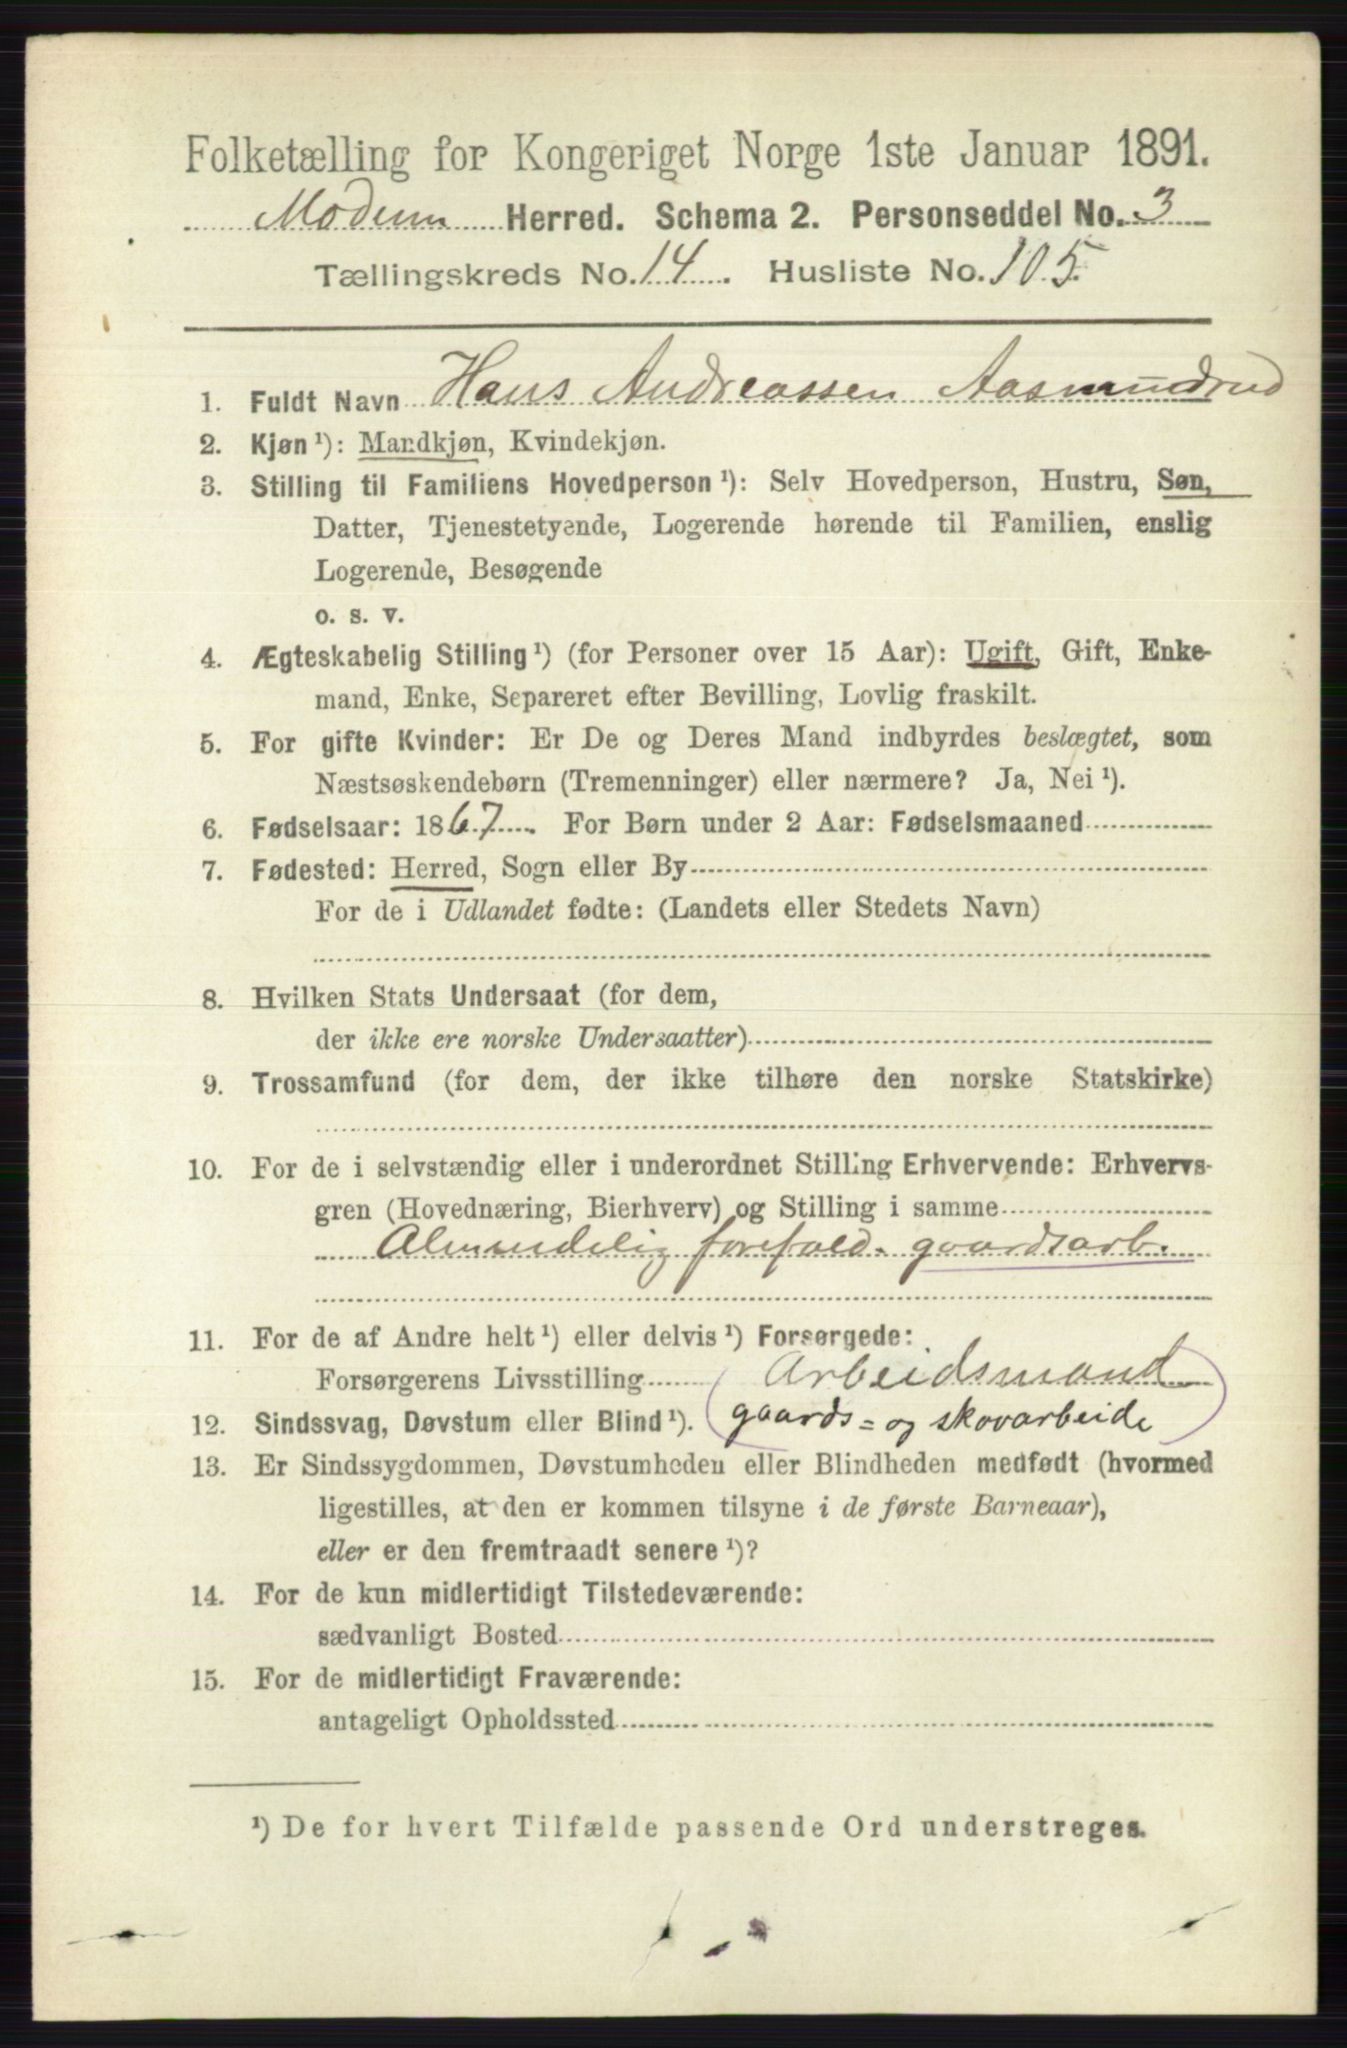 Folketælling for Kongeriget Norge 1ste Januar 1891.
Modum Herred. Schema 2. Personseddel No. 3
Tællingskreds No. 14. Husliste No. 105.
1. Fuldt Navn Hans Andreassen Aasmundrud
2. Kjøn ¹): Mandkjøn, Kvindekjøn.
3. Stilling til Familiens Hovedperson ¹): Selv Hovedperson, Hustru, Søn,
Datter, Tjenestetyende, Logerende hørende til Familien, enslig
Logerende, Besøgende
o. s. v.
4. Ægteskabelig Stilling ¹) (for Personer over 15 Aar): Ugift, Gift, Enke-
mand, Enke, Separeret efter Bevilling, Lovlig fraskilt.
5. For gifte Kvinder: Er De og Deres Mand indbyrdes beslægtet, som
Næstsøskendebørn (Tremenninger) eller nærmere? Ja, Nei ¹).
6. Fødselsaar: 1867. For Børn under 2 Aar: Fødselsmaaned
7. Fødested: Herred, Sogn eller By
For de i Udlandet fødte: (Landets eller Stedets Navn)
8. Hvilken Stats Undersaat (for dem,
der ikke ere norske Undersaatter)
9. Trossamfund (for dem, der ikke tilhøre den norske Statskirke)
10. For de i selvstændig eller i underordnet Stilling Erhvervende: Erhvervs-
gren (Hovednæring, Bierhverv) og Stilling i samme
Almindelig forefald. gaardsarb.
11. For de af Andre helt ¹) eller delvis ¹) Forsørgede:
Forsørgerens Livsstilling Arbeidsmand
12. Sindssvag, Døvstum eller Blind ¹). gaards= og skovarbeide
13. Er Sindssygdommen, Døvstumheden eller Blindheden medfødt (hvormed
ligestilles, at den er kommen tilsyne i de første Barneaar),
eller er den fremtraadt senere ¹)?
14. For de kun midlertidigt Tilstedeværende:
sædvanligt Bosted
15. For de midlertidigt Fraværende:
antageligt Opholdssted
¹) De for hvert Tilfælde passende Ord understreges.